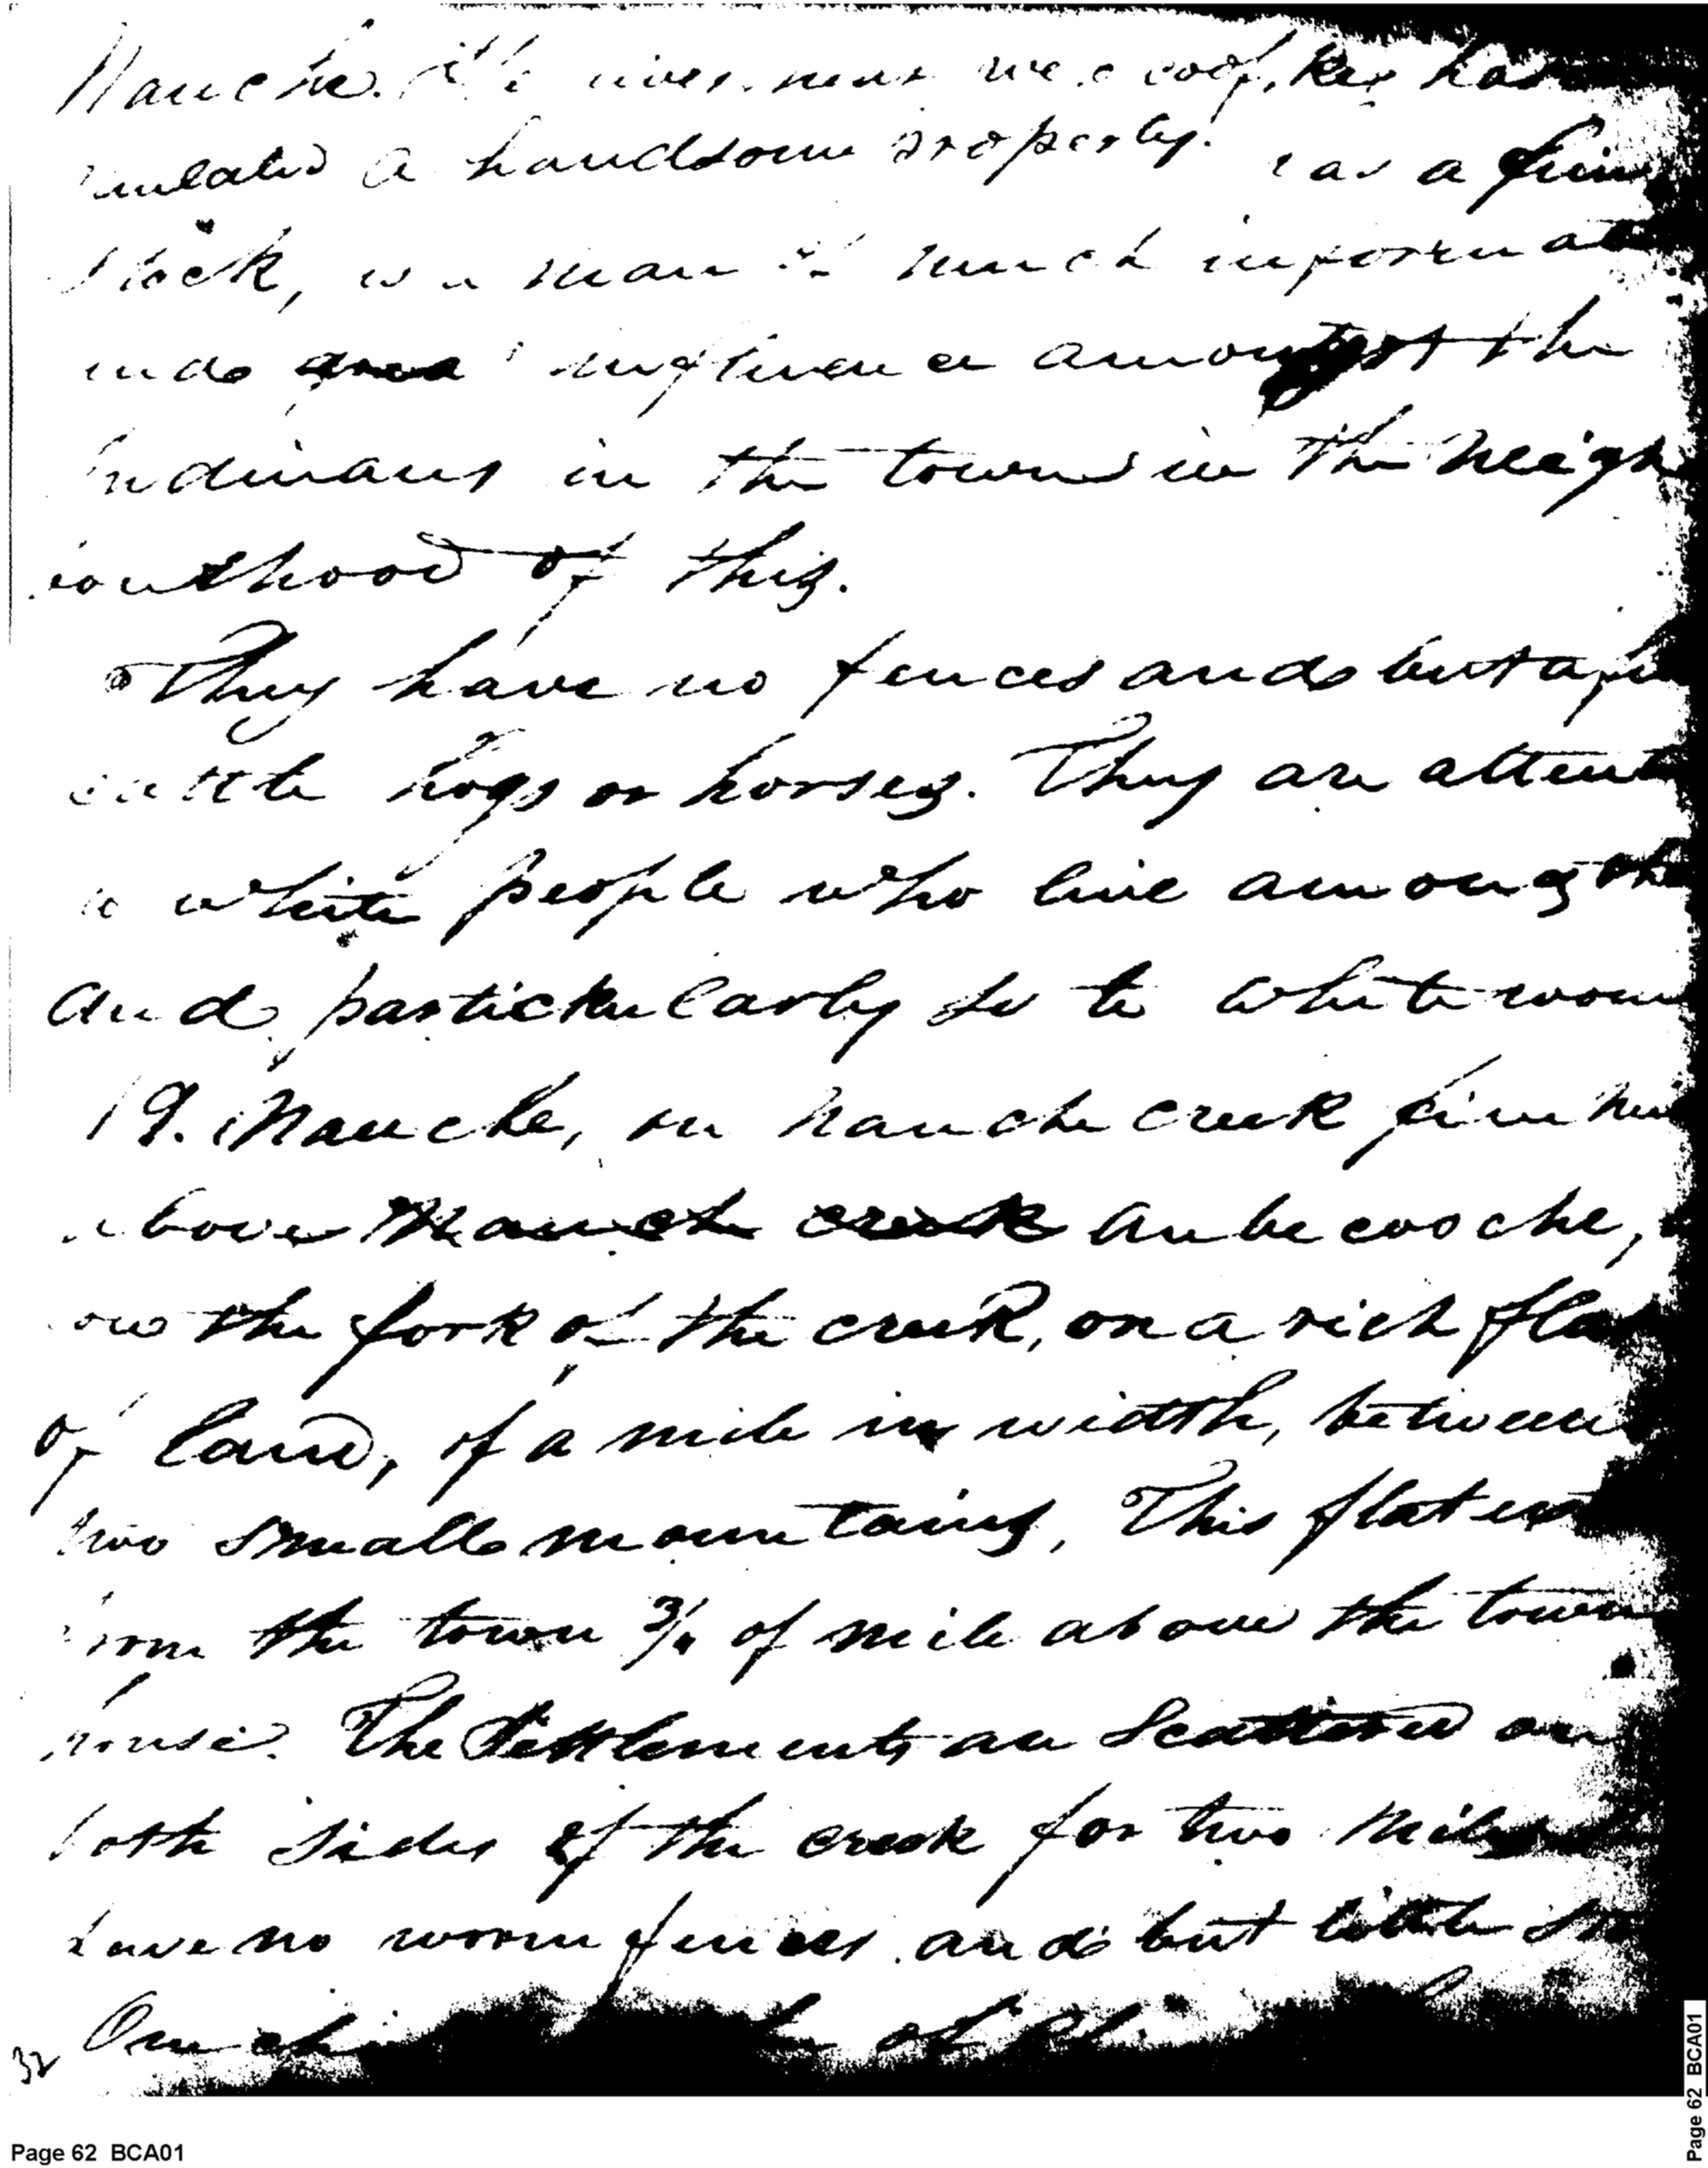 Nauche. He lives near we o coof, kee has
mulated a handsome property. has a fine
stock, is a man of much informat
and great influence amongst the
Indinans in the towns in the neigh
bourhood of this.
They have no fences and but a few
cattle hogs or horses. They are attent
to white people who live among the
and particularly so to white wom
19. Nauche, on nauche creek five mi
above Nauche creek au be coo che,
on the fork of the creek, on a rich flat
of land, of a mile in width, between
two small mountains, This flat ext
from the town 3/4 of mile above the town
house. The settlements are scattered on
both sides of the creek for two miles
have no worm fences and but little sto
One chi
32
Page 62 BCA01
Page 62 BCA01